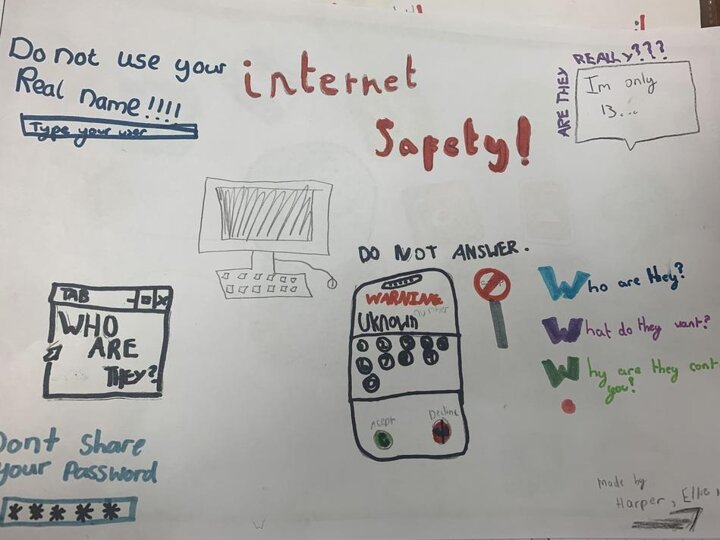 Do not use your
Real name!!!!
Type your user
internet
Safety!
ARE THEY
REALLY???
Im only
13...
DO NOT ANSWER.
WARNING
Uknown
number
Accept
Decline
TAB
WHO
ARE
THEY?
Who are they?
What do they want?
Why are they cont
you?
Dont Share
your Password
*****
Made by
Harper, Ellie,